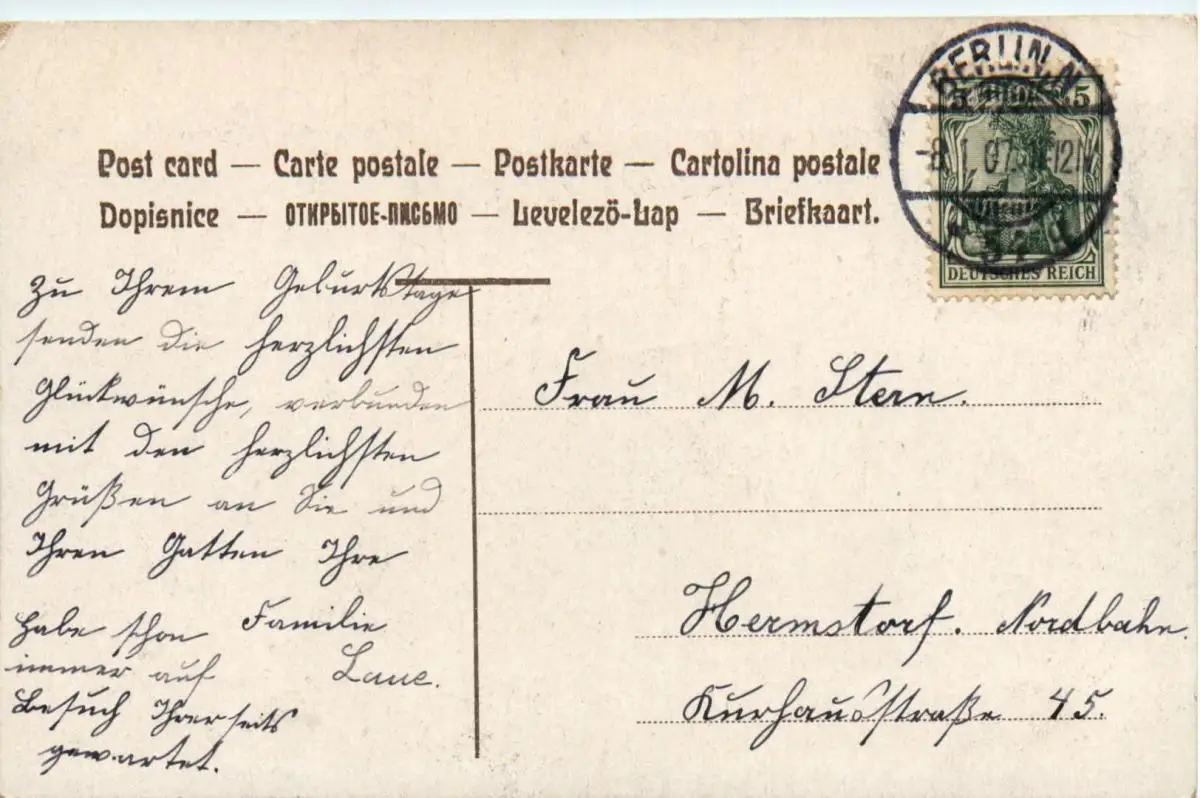 Post card — Carte postale — Postkarte — Cartolina postale
Dopisnice — ОТКРЫТОЕ-ПИСЬМО — Levelezö-Lap — Briefkaart.
BERLIN.N.
-8.1.07.
5 5
DEUTSCHES REICH
Zu Ihrem Geburtstage
senden die herzlichsten
Glückwünsche, verbunden
mit den herzlichsten
Grüßen an Sie und
Ihren Gatten Ihre
Familie
Laue.
habe schon
immer auf
Besuch Ihrerseits
gewartet.
Frau M. Stern.
Hermstorf. Nordbahn.
Kurhausstraße 45.